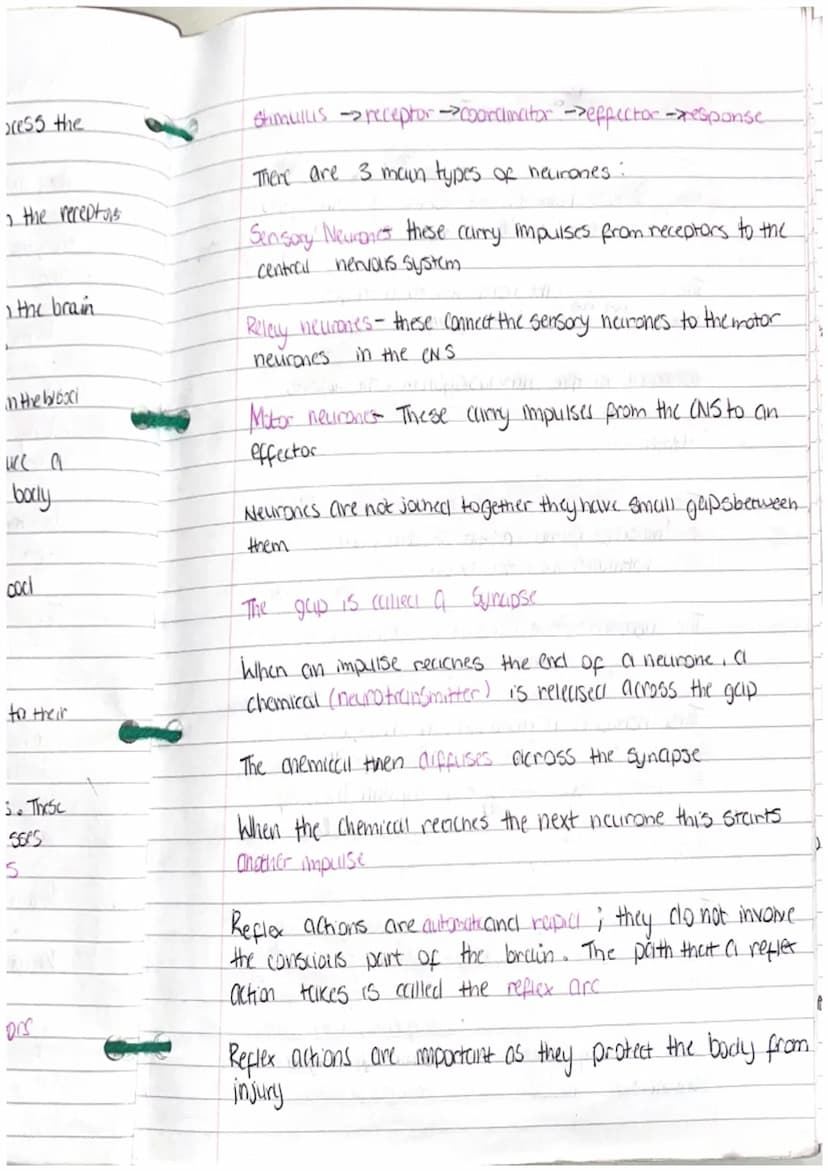 ocess the
n the receptors
n the brain
in the bloo
uce a
body
ood
to their
s. These
sses
s
ors
Stimulus → receptor → coordinator → effector → response
There are 3 main types of neurones:
Sensory Neurones these carry impulses from receptors to the
central nervous system
Relay neurones - these connect the sensory neurones to the motor
neurones in the CNS
Motor neurones - These carry impulses from the CNS to an
effector
Neurones are not joined together they have small gaps between
them
The gap is called a synapse
When an impulse reaches the end of a neurone, a
chemical (neurotransmitter) is released across the gap
The chemical then diffuses across the synapse
When the chemical reaches the next neurone this starts
another impulse
Reflex actions are automatic and rapid; they do not involve
the conscious part of the brain. The path that a reflex
action takes is called the reflex arc
Reflex actions are important as they protect the body from
injury